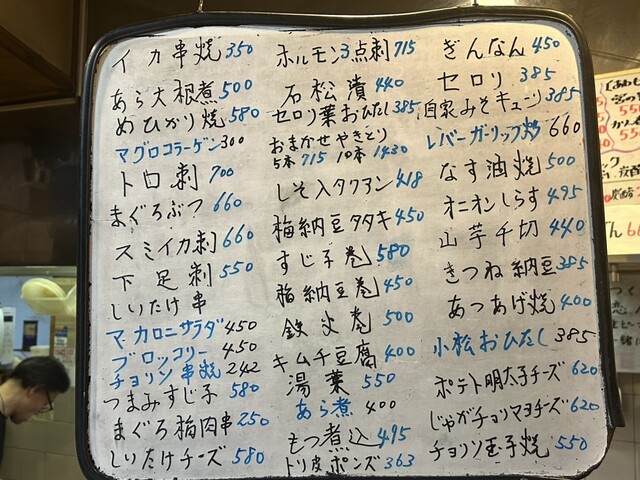 イカ串焼 350
あら大根煮 500
めひかり焼 580
マグロコラーゲン 300
トロ刺 700
まぐろぶつ 660
スミイカ刺 660
下足刺 550
しいたけ串
マカロニサラダ 450
ブロッコリー 450
チョリソ串焼 242
つまみすじ子 580
まぐろ梅肉串 250
しいたけチーズ 580
ホルモン3点刺 715
石松漬 440
セロリ葉おひたし 385
おまかせやきとり
5本 715 10本 1430
しそ入タクアン 418
梅納豆タタキ 450
すじ子巻 580
梅納豆巻 450
鉄火巻 500
キムチ豆腐 400
湯葉 550
あら煮 400
もつ煮込 495
トリ皮ポンズ 363
ぎんなん 450
セロリ 385
自家みそキューリ 385
レバーガーリック炒 660
なす油焼 500
オニオンしらす 495
山芋千切 440
きつね納豆 385
あつあげ焼 400
小松おひたし 385
ポテト明太子チーズ 620
じゃがチョリマヨチーズ 620
チョリソ玉子焼 550